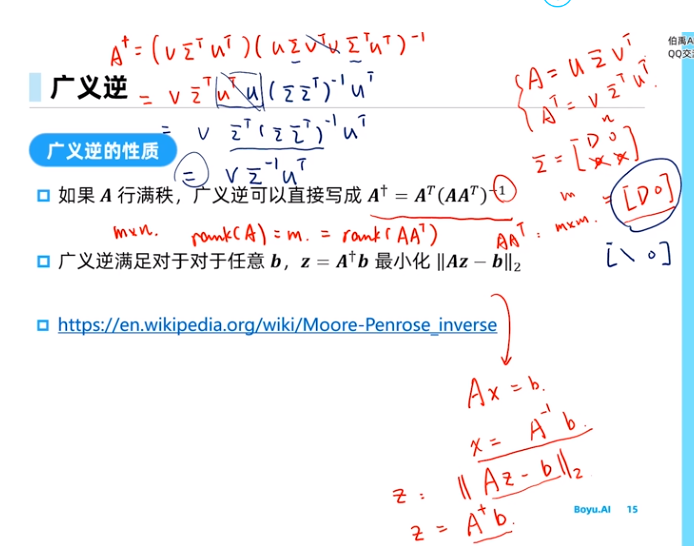 伯禹A
QQ交流
A† = (V Σᵀ Uᵀ)(U Σ Vᵀ V Σᵀ Uᵀ)⁻¹
广义逆
= V Σᵀ Uᵀ U (Σ Σᵀ)⁻¹ Uᵀ
= V Σᵀ (Σ Σᵀ)⁻¹ Uᵀ
= V Σ⁻¹ Uᵀ
{ A = U Σ Vᵀ
Aᵀ = V Σᵀ Uᵀ.
n
Σ = [D 0
m
= [D 0]
[\ 0]
广义逆的性质
如果 A 行满秩，广义逆可以直接写成 A† = Aᵀ(AAᵀ)⁻¹
m×n. rank(A) = m. = rank(AAᵀ)
AAᵀ: m×m.
广义逆满足对于对于任意 b，z = A†b 最小化 ‖Az − b‖₂
https://en.wikipedia.org/wiki/Moore-Penrose_inverse
Ax = b.
x = A⁻¹ b.
z: ‖Az − b‖₂
z = A†b.
Boyu.AI 15